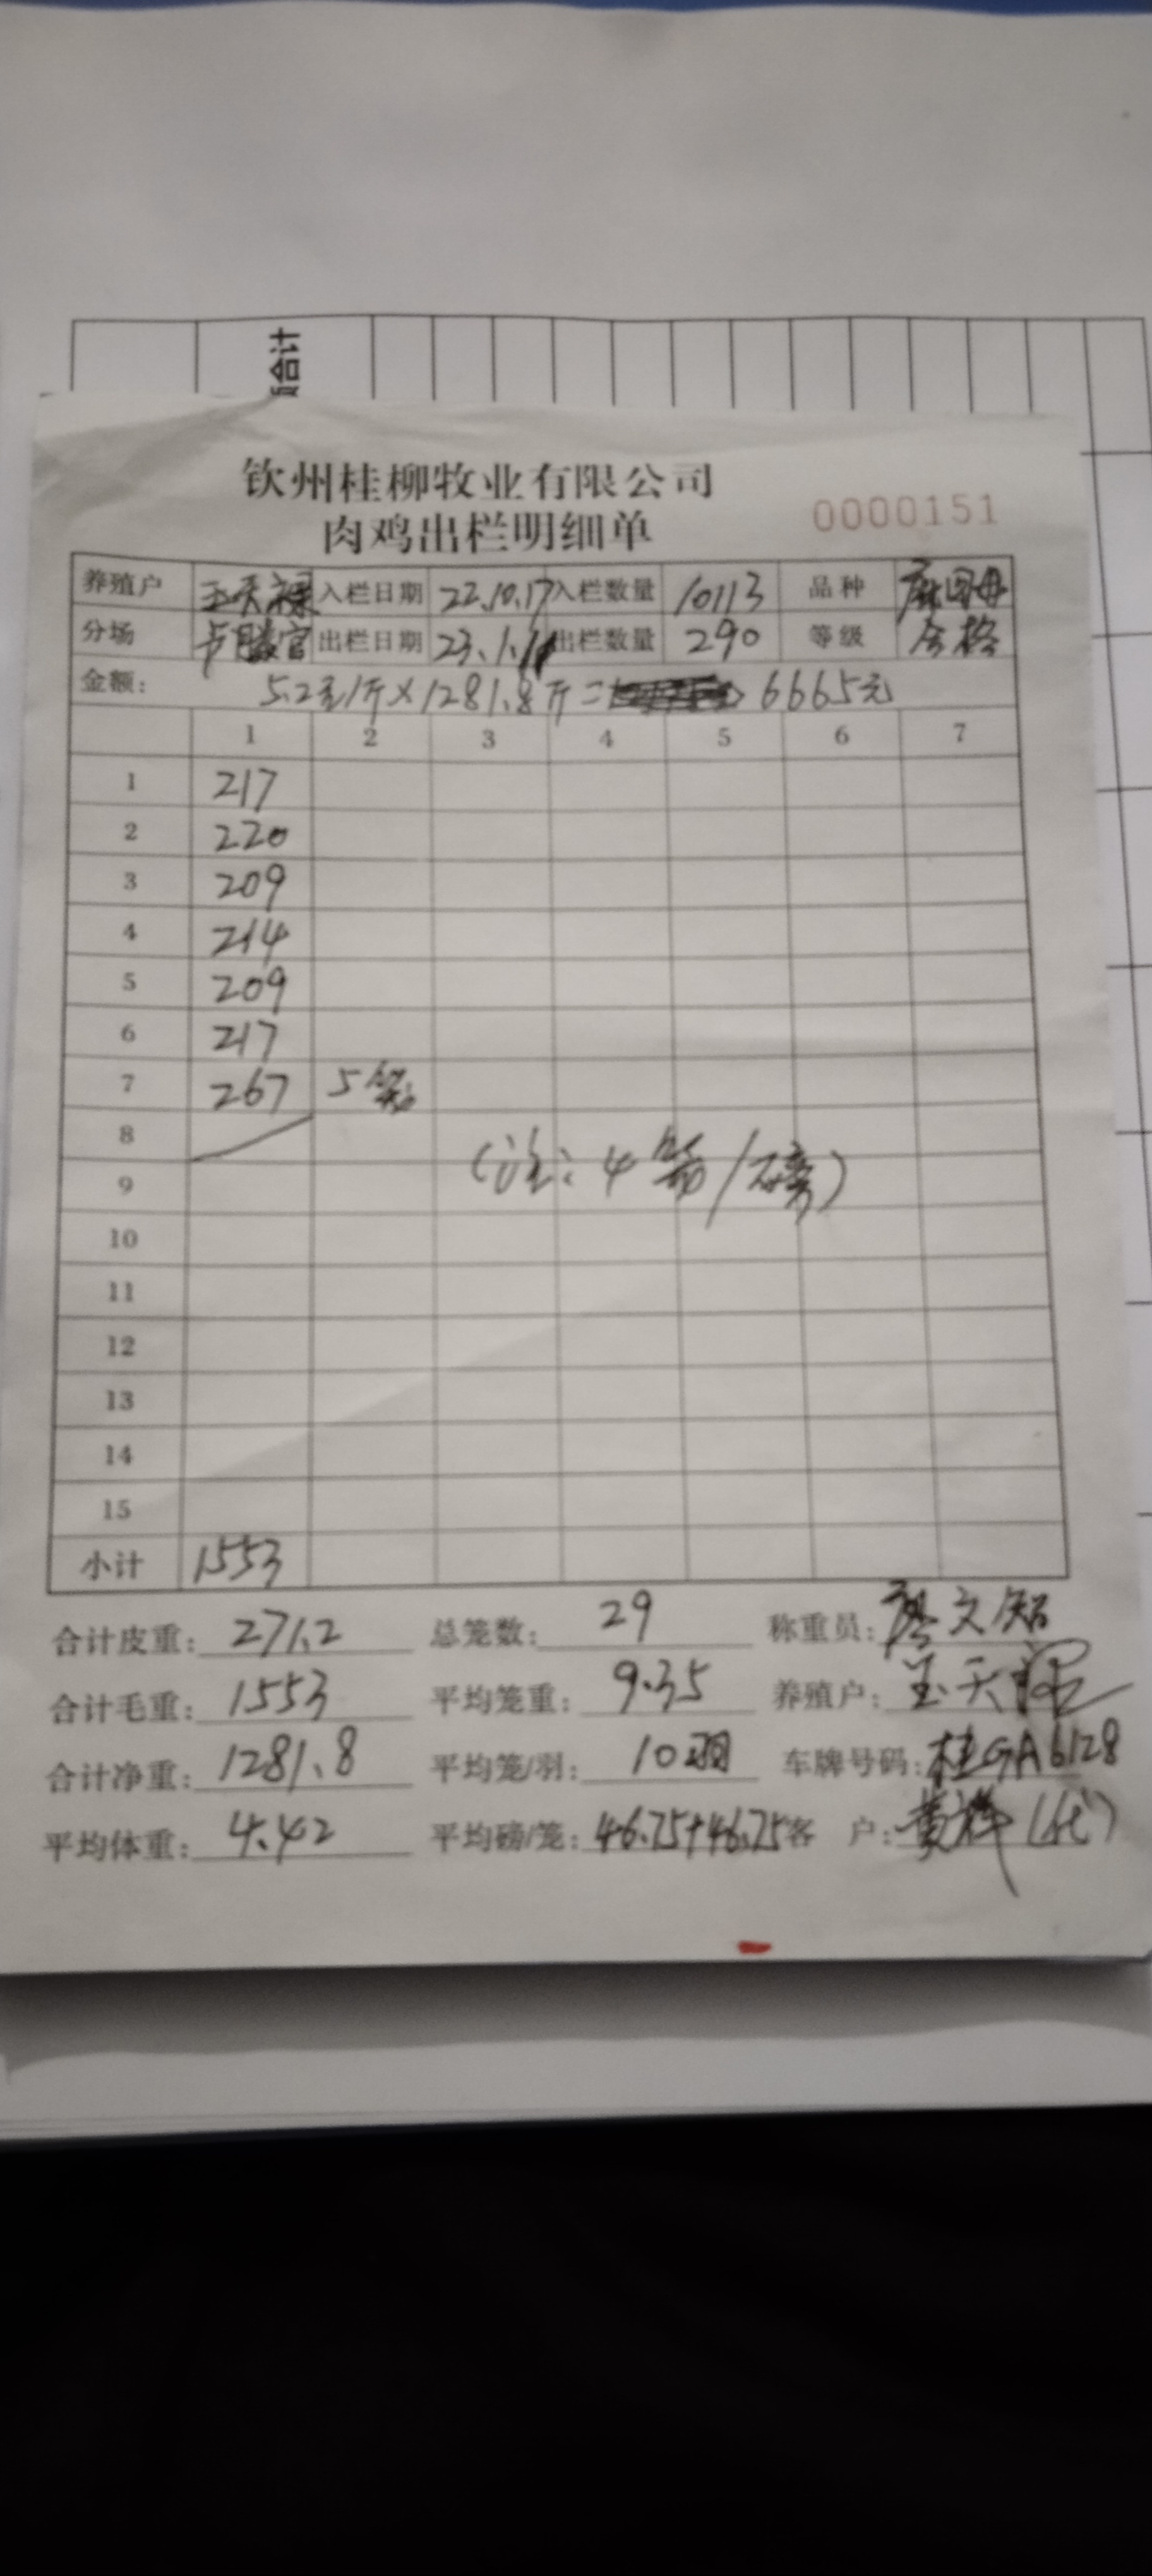 合计
钦州桂柳牧业有限公司
肉鸡出栏明细单
0000151
养殖户 王天禄 入栏日期 22.10.17 入栏数量 10113 品种
分场 出栏日期 23.1. 出栏数量 290 等级 合格
金额: 5.2元/斤×1281.8斤= 6665元
1 2 3 4 5 6 7
1 217
2 220
3 209
4 214
5 209
6 217
7 267 5笼
8
9 (注:4笼/磅)
10
11
12
13
14
15
小计 1553
合计皮重: 271.2 总笼数: 29 称重员: 廖文知
合计毛重: 1553 平均笼重: 9.35 养殖户:
合计净重: 1281.8 平均笼/羽: 10羽 车牌号码: 桂GA6128
平均体重: 4.42 平均磅/笼: 46.75+46.75 客 户: 黄祥(代)